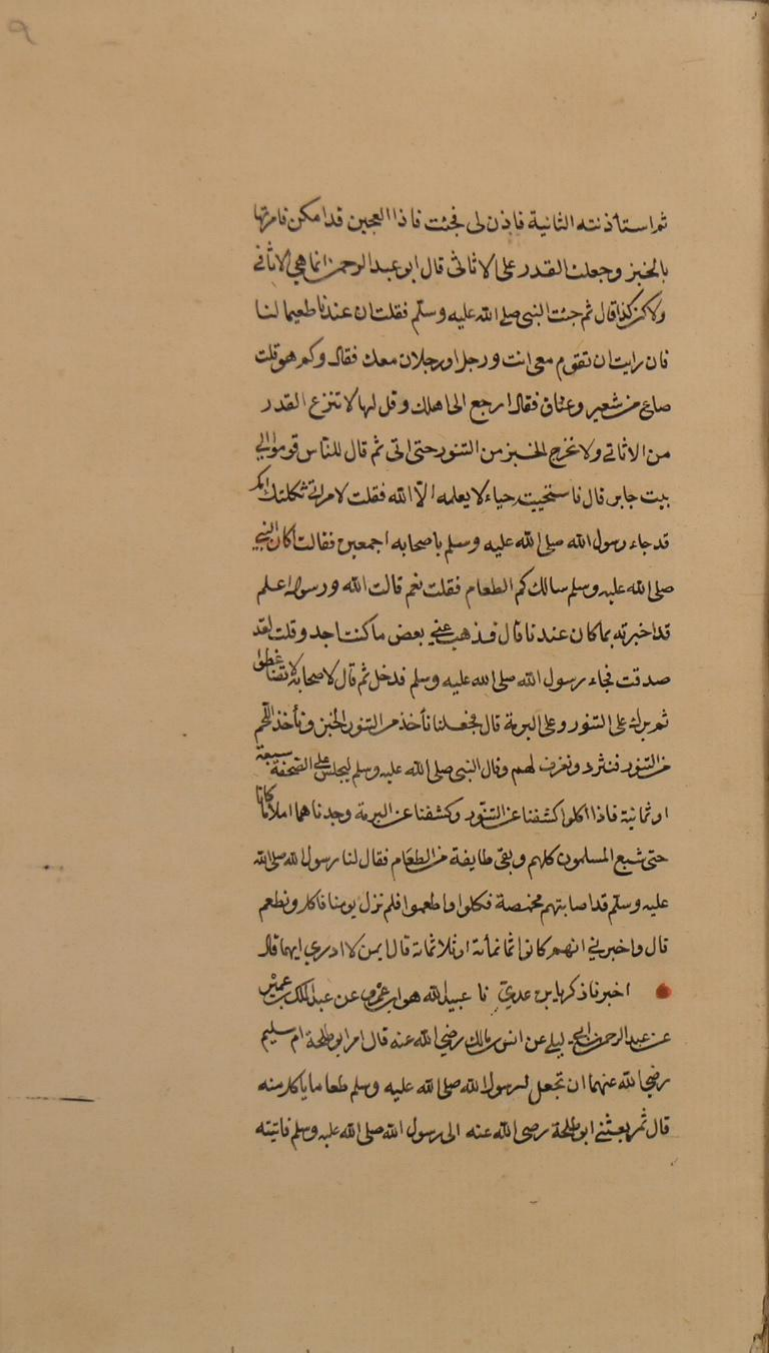 ٩
ثم استأذنته الثانية فاذن لى فجئت فاذا العجين قد امكن فامرتها
بالخبز وجعلت القدر على الاثاثى قال ابو عبد الرحمن انما هى الاثافى
ولاكن كذا قال ثم جئت النبى صلى الله عليه وسلم فقلت ان عندنا طعيما لنا
فان رايت ان تقوم معى انت ورجل او رجلان معك فقال وكم هو قلت
صاع من شعير وعناق فقال ارجع الى اهلك وقل لها لا تنزع القدر
من الاثاثى ولا تخرج الخبز من التنور حتى اتى ثم قال للناس قوموا الى
بيت جابر قال فاستحييت حياء لا يعلمه الا الله فقلت لامراتى ثكلتك امك
قد جاء رسول الله صلى الله عليه وسلم باصحابه اجمعين فقالت اكان النبى
صلى الله عليه وسلم سالك كم الطعام فقلت نعم قالت الله ورسوله اعلم
قد اخبرته بما كان عندنا قال فذهب عنى بعض ما كنت اجد وقلت لقد
صدقت فجاء رسول الله صلى الله عليه وسلم فدخل ثم قال لاصحابه لا تضاغطوا
ثم برك على التنور وعلى البرمة قال فجعلنا نأخذ من التنور الخبز ونأخذ اللحم
من التنور فنثرد ونغرف لهم وقال النبى صلى الله عليه وسلم ليجلس على الصحفة سبعة
او ثمانية فاذا اكلوا كشفنا عن التنور وكشفنا عن البرمة وجدناهما املأ ما كانا
حتى شبع المسلمون كلهم وبقى طايفة من الطعام فقال لنا رسول الله صلى الله
عليه وسلم قد اصابتهم مخمصة فكلوا واطعموا فلم نزل يومنا ناكل ونطعم
قال واخبرنى انهم كانوا ثمانمأئة او ثلاثمائة قال ايمن لا ادري ايهما قال
اخبرنا ذكريا بن عدي نا عبيد الله هو ابن عمرو عن عبد الملك بن عمير
عن عبد الرحمن بن ابى ليلى عن انس بن مالك رضي الله عنه قال امر ابو طلحة ام سليم
رضى الله عنهما ان تجعل لرسول الله صلى الله عليه وسلم طعاما ياكل منه
قال ثم بعثنى ابو طلحة رضى الله عنه الى رسول الله صلى الله عليه وسلم فاتيته